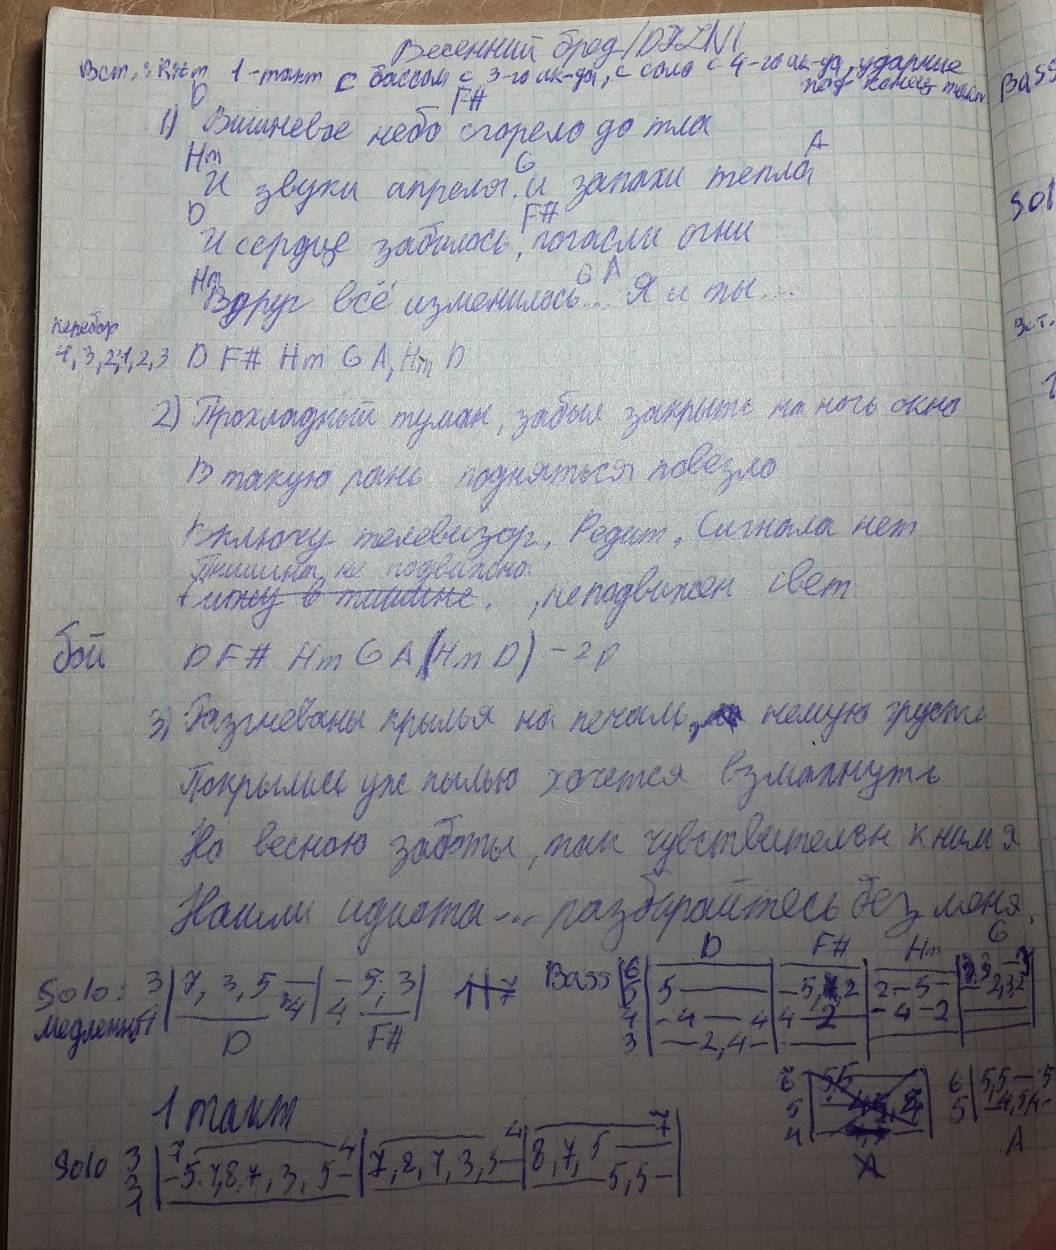 Весенний бред/DHZN1
Вст.: Ritm 1-такт с бассом с 3-го ак-да, с соло с 4-го ак-да, ударные
под конец такта
D F#
1) Вишневое небо сгорело до тла
Hm G A
И звуки апреля и запахи тепла
D F#
И сердце забилось, погасли огни
Hm G A
Вдруг всё изменилось... Я и ты...
перебор
4,3,2,1,2,3 D F# Hm G A, Hm D
2) Прохладный туман, забыл закрыть на ночь окно
В такую рань подняться повезло
Включу телевизор, Сигнала нет
Тишина, не подвижна
в тишине, , неподвижен свет
бой D F# Hm G A (Hm D) - 2р
3) крылья на печали, немую грусть
Покрылись уж пылью хочется взмахнуть
Но весною заботы, так чувствителен к ним я
Нашли идиота... разбирайтесь без меня.
Solo: 3 7, 3, 5 - - 5, 3
медленно 4 4
D F#
Bass D F# Hm G
6 5
5 5 - 5, 2 2 - 5 -
4 - 4 - 4 4 2 - 4 - 2
3 - 2, 4 -
6 5,5 6 5,5 - 5
5 5 - 4,5,4 -
4
A A
1 такт
Solo 3 7 4 4 7
2 - 5.7,8,7,3,5 - 7,8,7,3,5 - 8,7,5 5,5 -
1
Bass
Sol